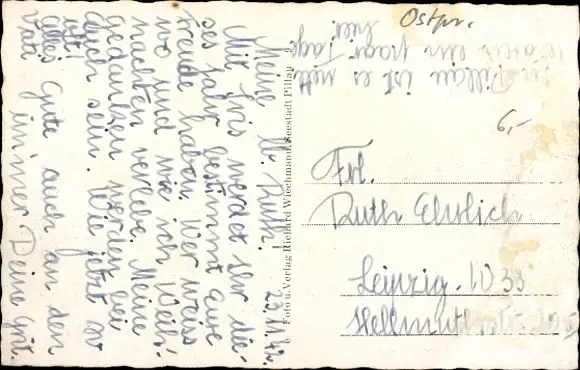 Meine lb. Ruth! 23.11.42.
Mit Iris werdet Ihr die-
ses Jahr bestimmt Eure
Freude haben. Wer weiss
wo und wie ich Weih-
nachten verlebe. Meine
Gedanken werden bei
Euch sein. Wie jetzt so
oft!
Alles Gute auch an den
Vati immer Deine Grit.
Pillau ist es nett
ein paar Tage
hier.
Foto u. Verlag Richard Wiechmann, Seestadt Pillau
Ostpr.
6,-
Frl.
Ruth Ehrlich
Leipzig. W 33